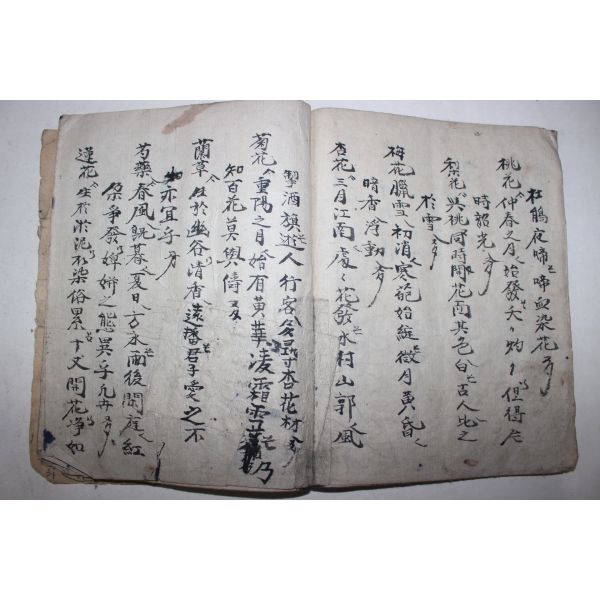 杜鵑夜啼啼血染花
桃花仲春之月始發夭夭灼灼但得
時韶光
梨花與桃同時開花而其色白古人比之
於雪
梅花臘雪初消寒葩始綻微月黃昏
暗香浮動
杏花三月江南處處花發水村山郭風
酒旗遊人行客多尋杏花村
菊花重陽之月始有黃華凌霜乃
知百花莫與儔
蘭草生於幽谷清香遠播君子愛之不
亦宜乎
芍藥春風旣暮夏日方永雨後閑庭紅
朶爭發婥婥之態異乎凡卉
蓮花生於淤泥不染俗累十丈開花淨如